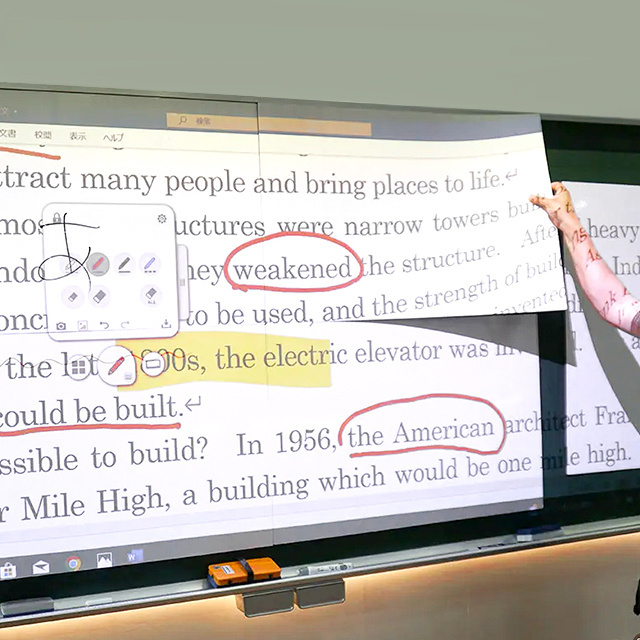 文書 校閲 表示 ヘルプ
検索
ttract many people and bring places to life.↵
mos uctures were narrow towers bu
あ
After heavy
ndo hey weakened the structure.
Ind
onc to be used, and the strength of buil
invented
the lat 00s, the electric elevator was inv d.
could be built.↵
ssible to build? In 1956, the American architect Fra
r Mile High, a building which would be one mile high.